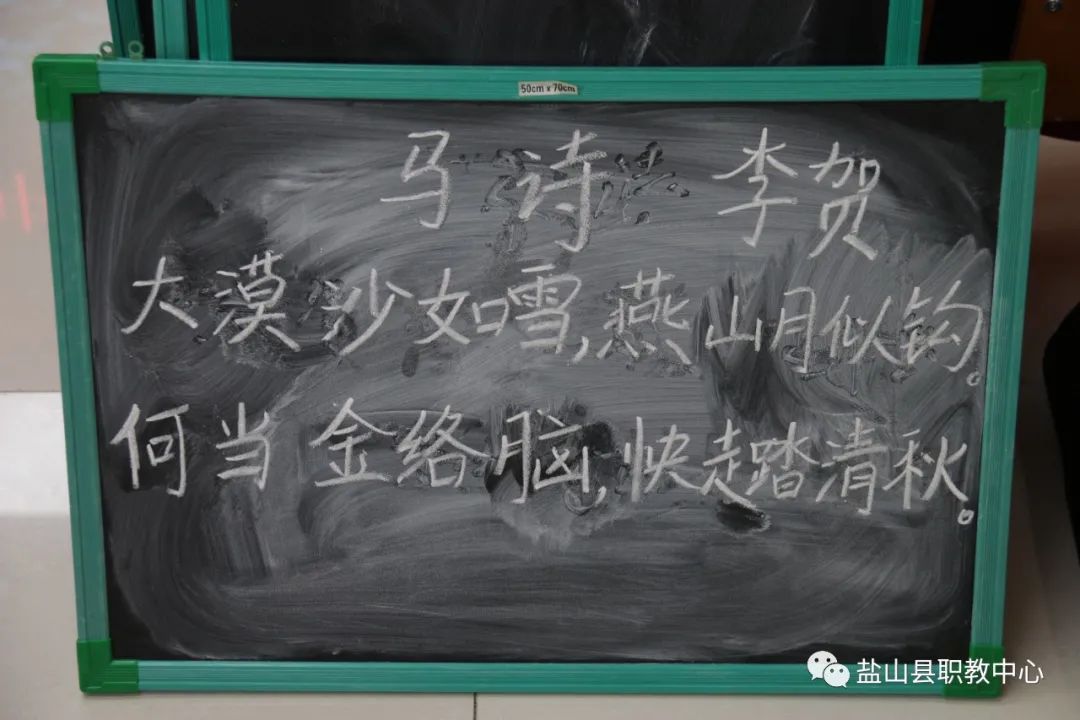 50cm x 70cm
马诗 李贺
大漠沙如雪,燕山月似钩。
何当金络脑,快走踏清秋。
盐山县职教中心